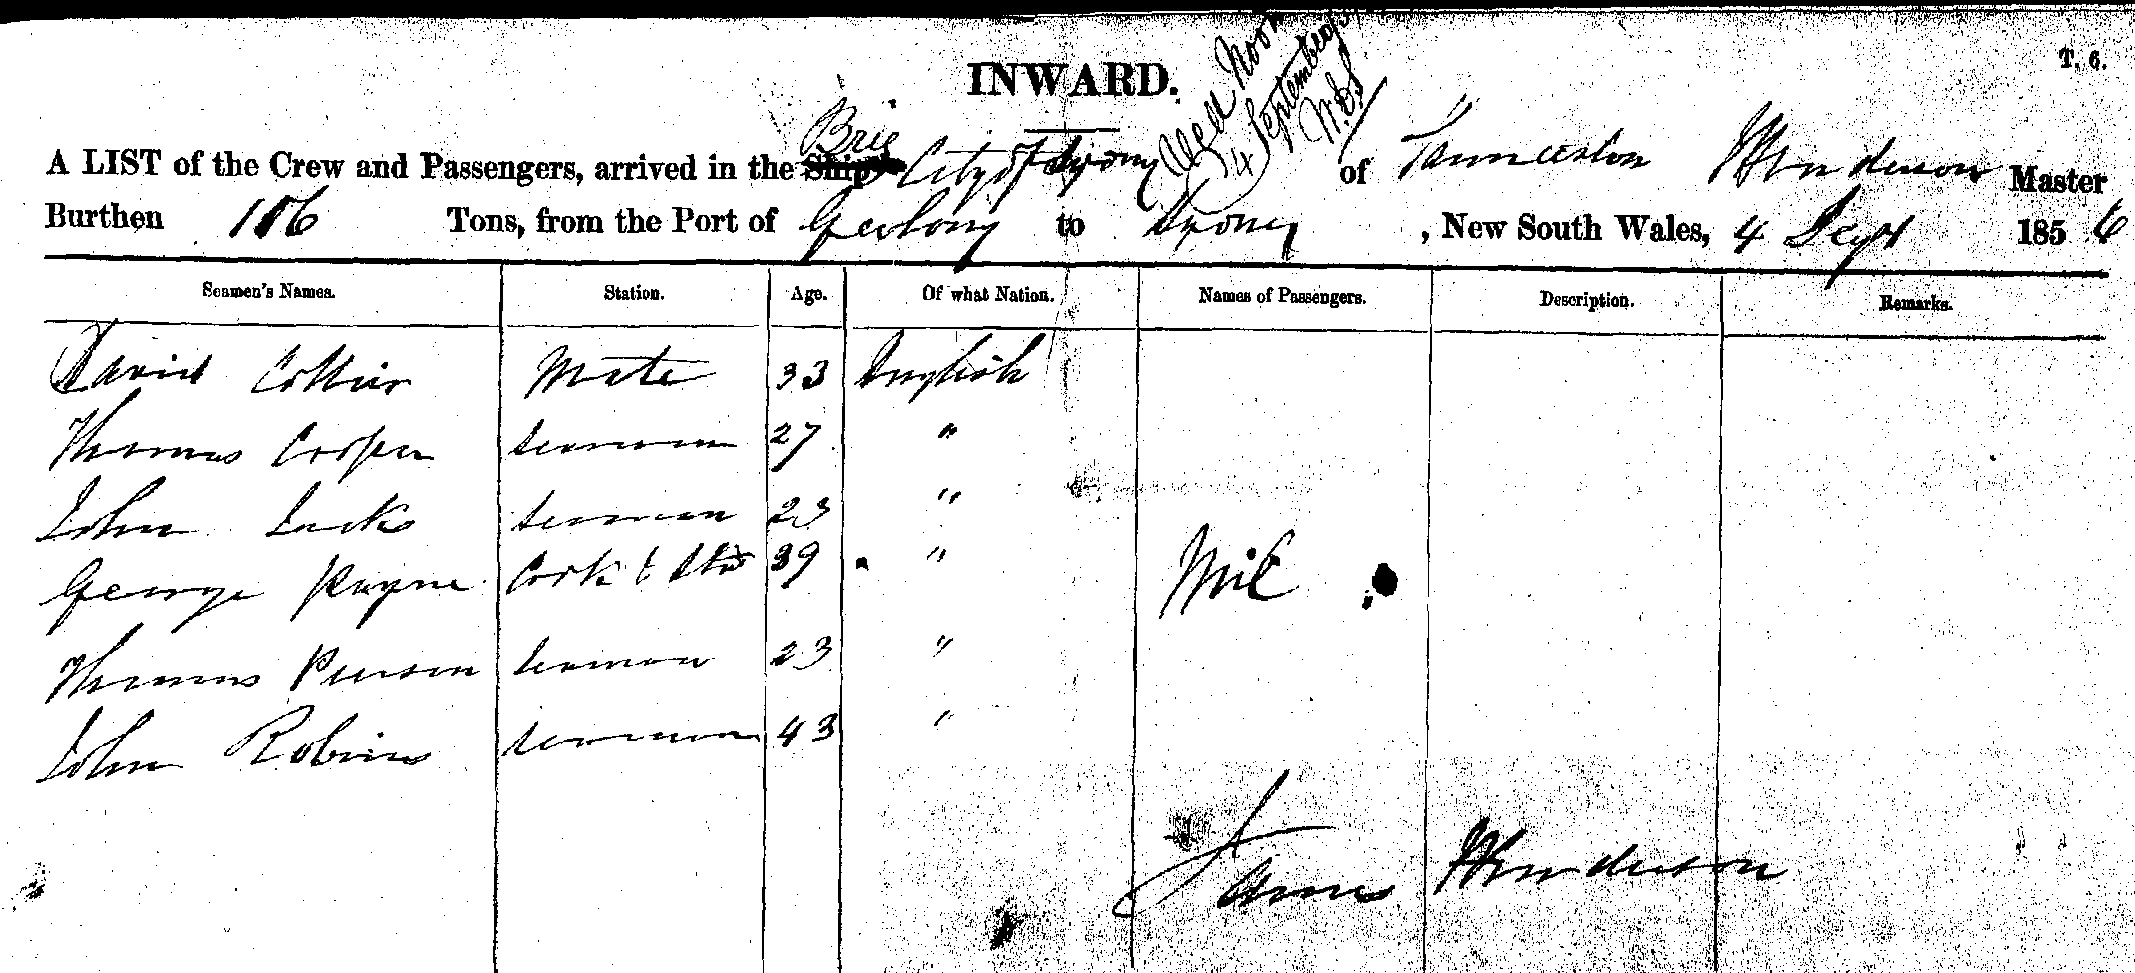 T. 6.
INWARD.
Wed Noon
4 September
A LIST of the Crew and Passengers, arrived in the Ship Brig City of Sydney of Launceston Henderson Master
Burthen 106 Tons, from the Port of Geelong to Sydney, New South Wales, 4 Sept 1856
Seamen's Names. Station. Age. Of what Nation. Names of Passengers. Description. Remarks.
David Collier Mate 33 English
Thomas Cooper seaman 27 "
John Lucks seaman 23 "
George Payne Cook & Std 39 "
Nil
Thomas Pearson seaman 23 "
John Robins seaman 43 "
James Henderson